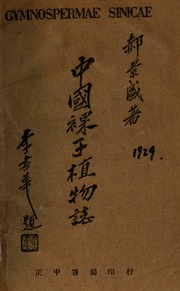 GYMNOSPERMAE SINICAE
郝景盛著
中國裸子植物誌
1929.
李書華題
正中書局印行